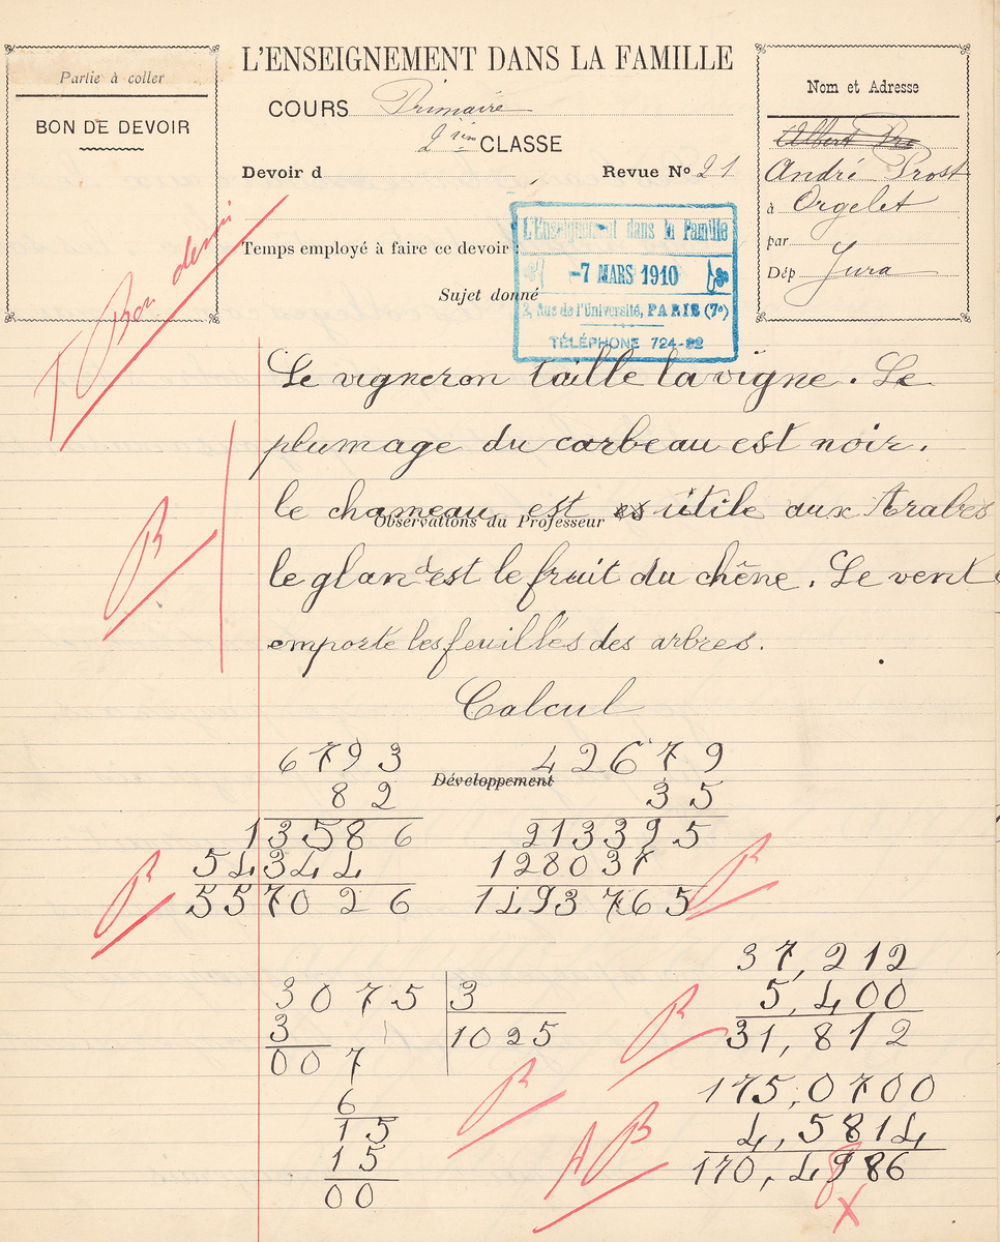 Partie à coller
BON DE DEVOIR
L'ENSEIGNEMENT DANS LA FAMILLE
COURS Primaire
2ième CLASSE
Devoir d
Revue Nº 21
Temps employé à faire ce devoir :
Sujet donné
Nom et Adresse
Albert Pro
André Prost
à Orgelet
par
Dép Jura
L'Enseignement dans la Famille
-7 MARS 1910
2, Rue de l'Université, PARIS (7e)
TÉLÉPHONE 724-82
T Bon devoir
Le vigneron taille la vigne. Le
plumage du corbeau est noir.
le chameau est es utile aux Arabes
Observations du Professeur
le gland est le fruit du chêne. Le vent
emporte les feuilles des arbres.
B
Calcul
6793
82
13586
54344
557026
B
Développement
42679
35
213395
128037
1493765
B
3075 3
3 1025
007
6
15
15
00
B
37,212
5,400
31,812
B
175,0700
4,5814
170,4986
8
X
AB